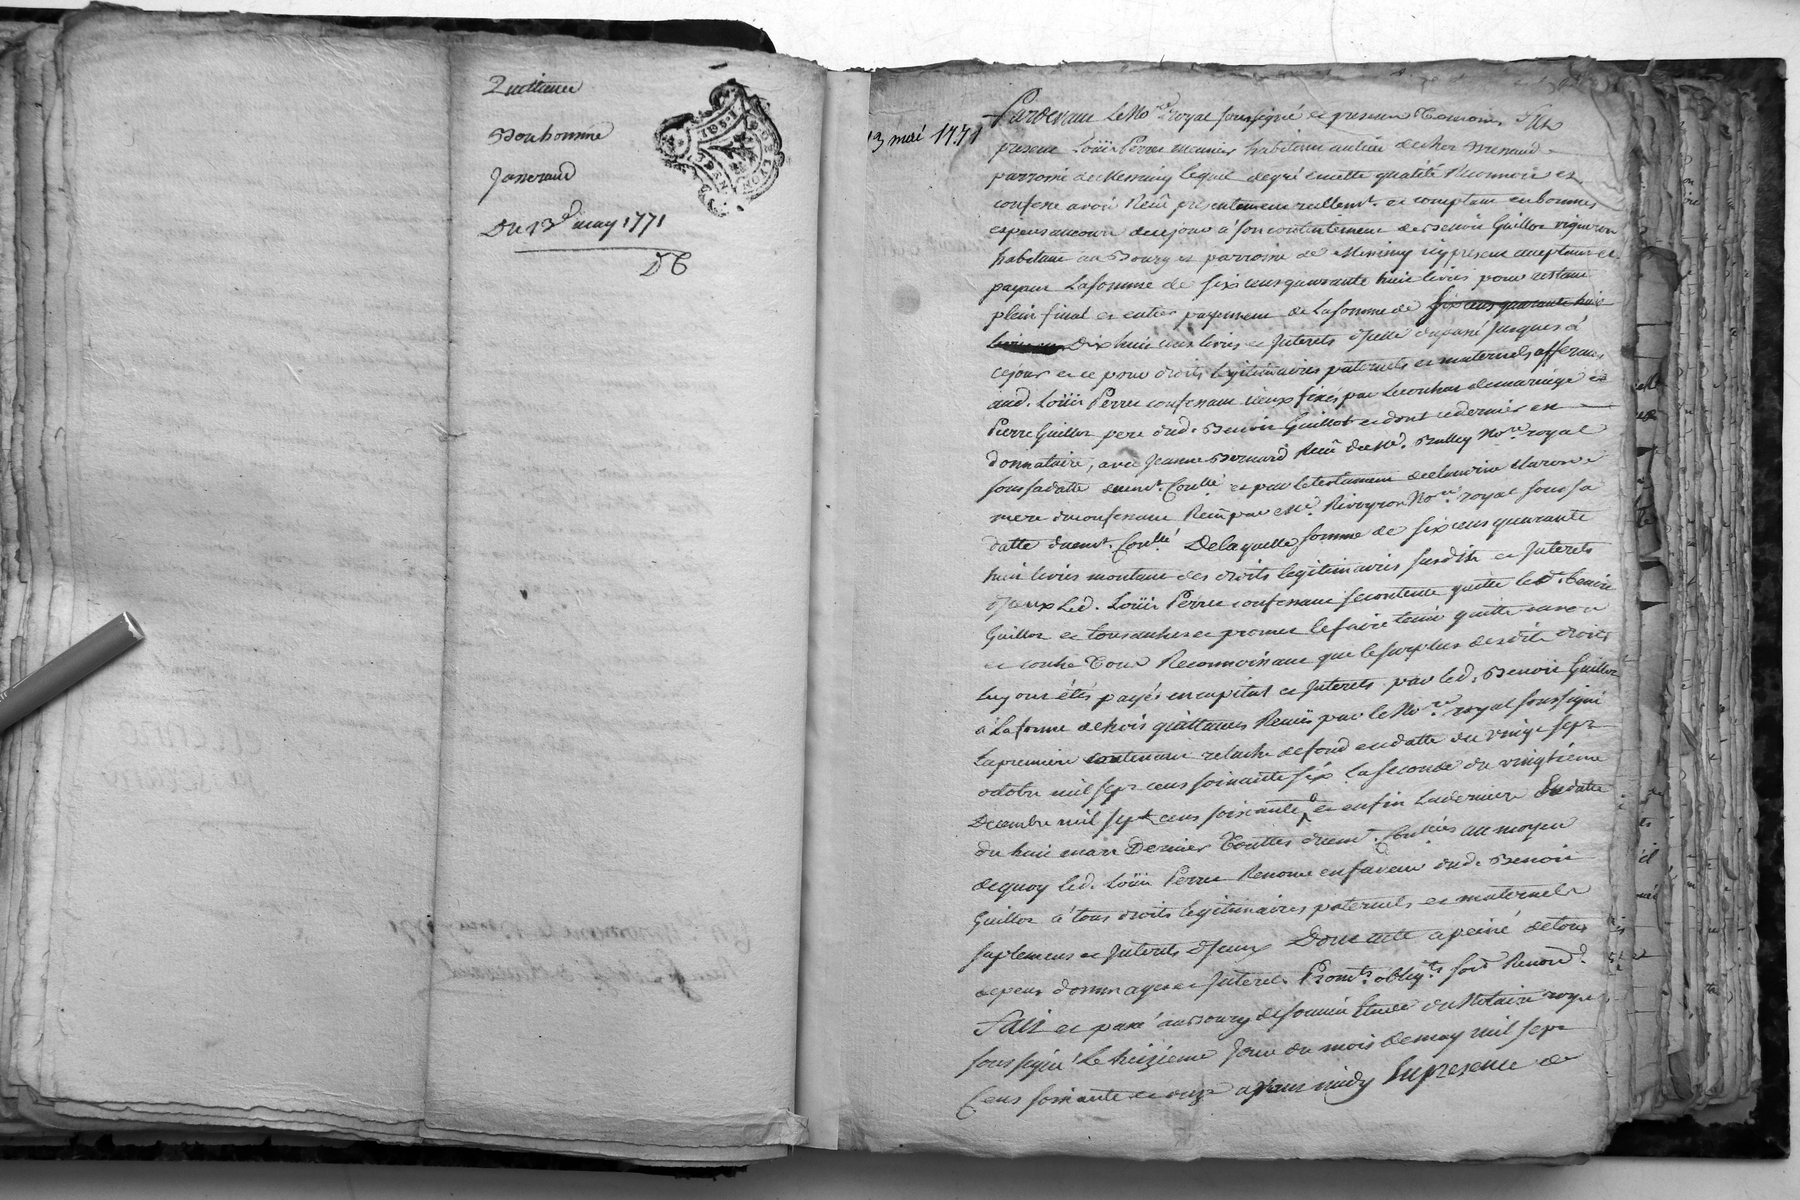 Quittance
Bonhomme
Jasseraud
Du 13e may 1771
DC
GEN. DE LYON
13 mai 1771
Pardevant le Nore royal soussigné et present temoins fut
present Loüis Perre meunier habitant au lieu de
parroisse de Messimy lequel de gré en cette qualité Reconnoit et
confesse avoir Reçu presentement reellemt. et comptant en bonnes
especes au cours de ce jour a son contentement de Benoit Guillot vigneron
habitant au Bourg et parroisse de Messimy icy present acceptant et
payant La somme de six cens quarante huit livres pour restant
plein final et entier payement de La somme de six cens quarante huit
livres Dix huit cens livres et Interets d'Icelle du passé jusques à
ce jour et ce pour droits legitimaires paternels et maternels afferans
aud. Loüis Perre confessant iceux fixés par le contrat de mariage de
Pierre Guillot pere dud. Benoit Guillot et dont ce dernier est
donnataire, avec Jeanne Bernard Reçu de Me. Bulley Nore. royal
sous sa datte duemt. Conllé. et par le testament de Claudine
mere du confessant Reçu par Me. Rivoyron Nore. royal sous sa
datte duemt. Conllé. De laquelle somme de six cens quarante
huit livres montant des droits legitimaires susdits et Interets
d'Iceux Led. Loüis Perre confessant se contente quitte led. Benoit
Guillot et tous autres et promet le faire tenir quitte envers
et contre tous Reconnoissant que le surplus desdits droits
luy ont étés payés en capital et Interets par led. Benoit Guillot
à La forme de trois quittances Reçues par le Nore. royal soussigné
La premiere contenant relache de fond en datte du vingt sept
octobre mil sept cens soixante six La seconde du vingtieme
Decembre mil sept cens soixante et enfin La derniere En datte
du huit mars Dernier Touttes duemt. Conllées au moyen
de quoy led. Loüis Perre Renonce en faveur dud. Benoit
Guillot à tous droits legitimaires paternels et maternels
suplemens et Interets d'Iceux Dont acte a peine de tous
depens dommages et Interets Promts. obligts. soud. Renond.
Fait et passé au Bourg de Soucieu Etude du Notaire royal
soussigné Le treizieme Jour du mois de may mil sept
Cens soixante et onze apres midy En presence de